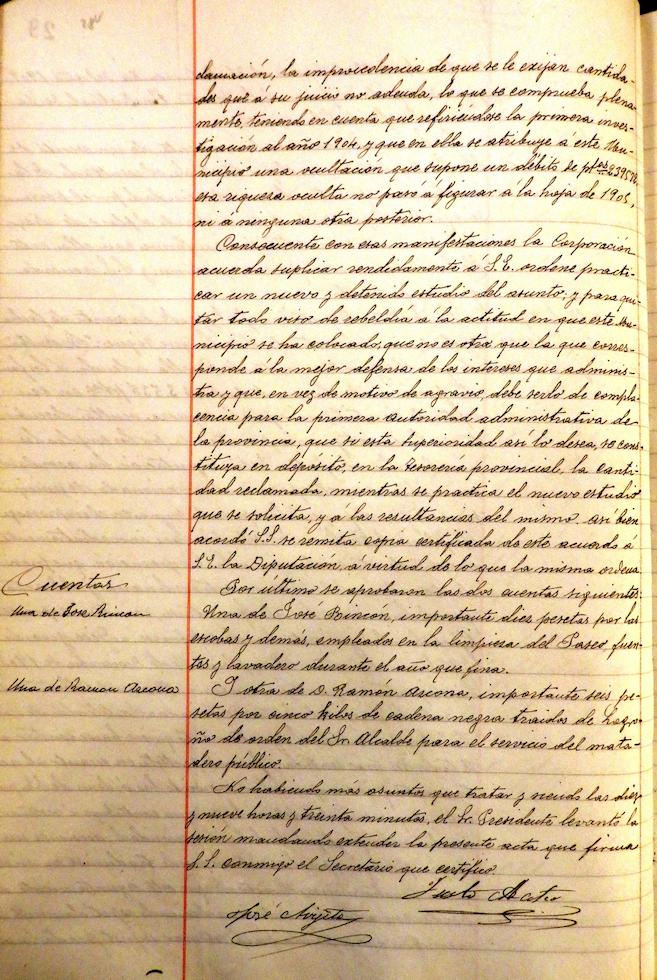 clamación, la improcedencia de que se le exijan cantida-
des que á su juicio no adeuda, lo que se comprueba plena-
mente, teniendo en cuenta que refiriéndose la primera inves-
tigación al año 1904, y que en ella se atribuye á este Mu-
nicipio una ocultación que supone un débito de ptas
esa riqueza oculta no pasó á figurar á la hoja de 1905,
ni á ninguna otra posterior.
Consecuente con esas manifestaciones la Corporación
acuerda suplicar rendidamente á S.E. ordene practi-
car un nuevo y detenido estudio del asunto; y para qui-
tar todo viso de rebeldía á la actitud en que este Mu-
nicipio se ha colocado, que no es otra que la que corres-
ponde á la mejor defensa de los intereses que adminis-
tra y que, en vez de motivo de agravio, debe serlo de compla-
cencia para la primera autoridad administrativa de
la provincia, que si esta superioridad así lo desea, se cons-
tituya en depósito, en la Tesorería provincial, la canti-
dad reclamada, mientras se practica el nuevo estudio
que se solicita, y á las resultancias del mismo. Así bien
acordó S.S. se remita copia certificada de este acuerdo á
S.E. la Diputación, á virtud de lo que la misma ordena.
Cuentas
Por último se aprobaron las dos cuentas siguientes:
Una de José Rincón
Una de José Rincón, importante diez pesetas por las
escobas y demás, empleados en la limpieza del Paseo fuen-
tes y lavadero durante el año que fina.
Una de Ramon Ascona
Y otra de D. Ramón Ascona, importante seis pe-
setas por cinco kilos de cadena negra traidos de Logro-
ño de orden del Sr. Alcalde para el servicio del mata-
dero público.
No habiendo más asuntos que tratar y siendo las diez
y nueve horas y treinta minutos, el Sr. Presidente levantó la
sesión mandando extender la presente acta que firma
S.S. conmigo el Secretario que certifico.
José